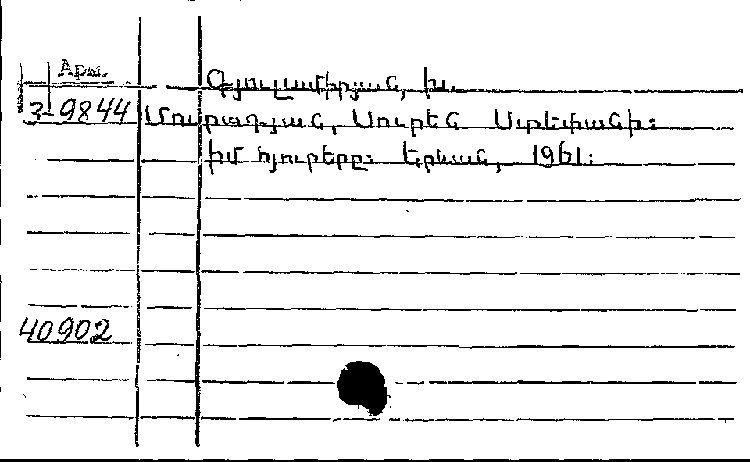 Արմ.
Գյուլամիրյան, խ.
3-9844 Մուրադյան, Սուրեն Ստեփանի:
իմ հյուրերը: Երևան, 1961:
40902